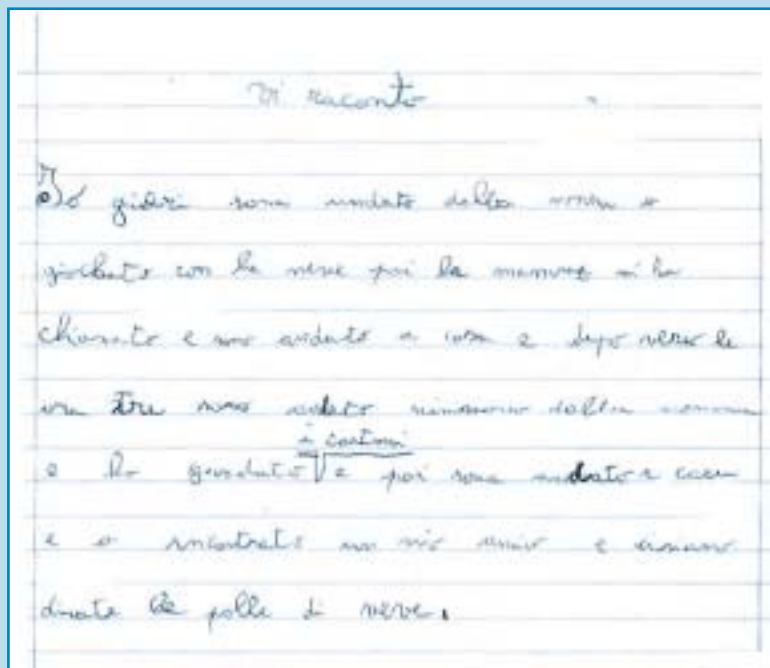 Vi raconto
Io gieri sono andato dalla nonna o
giocato con la neve poi la mamma mi ha
chiamato e sono andato a casa e dopo verso le
ore tre sono andato dalla nonna
i cartoni
e ho guardato e poi sono andato a casa
e o incontrato un mio amico e
le palle di neve.